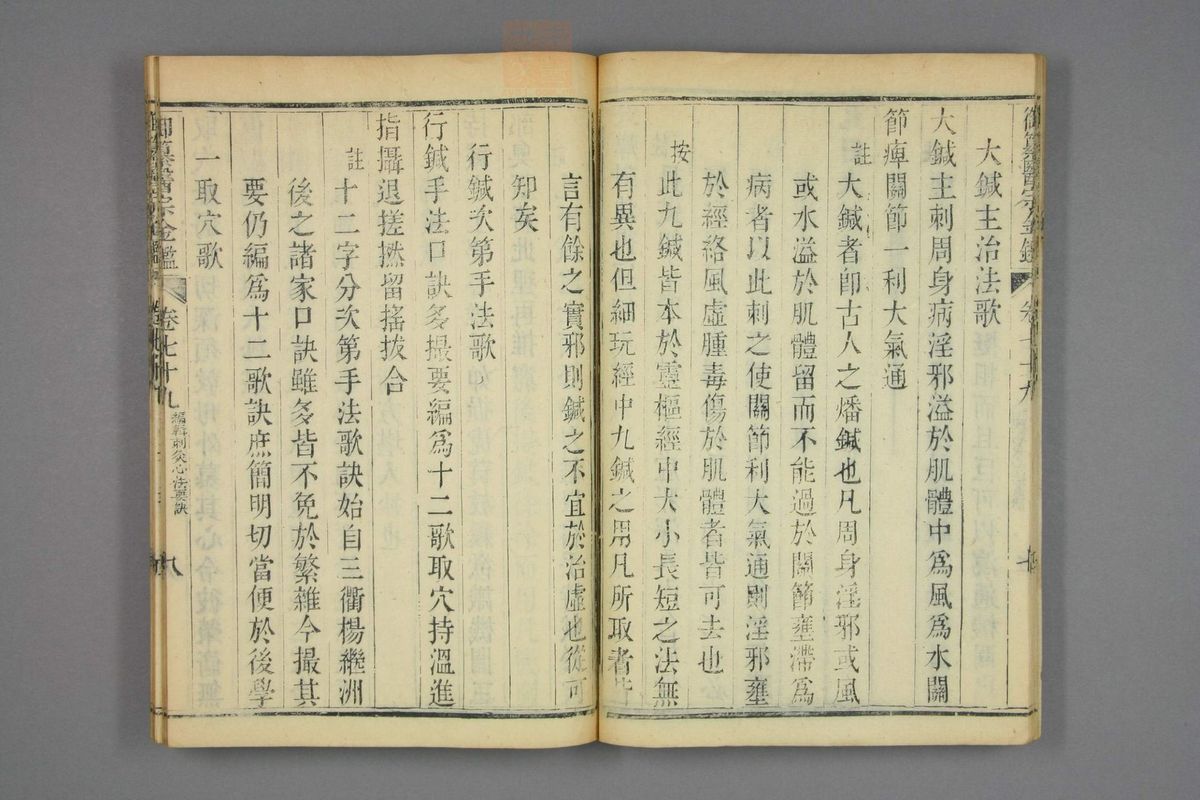 御纂醫宗金鑑
大鍼主治法歌
大鍼主刺周身病淫邪溢於肌體中為風為水關
節痺關節一利大氣通
註大鍼者卽古人之燔鍼也凡周身淫邪或風
或水溢於肌體留而不能過於關節壅滯為
病者以此刺之使關節利大氣通則淫邪壅
於經絡風虛腫毒傷於肌體者皆可去也
按此九鍼皆本於靈樞經中大小長短之法無
有異也但細玩經中九鍼之用凡所取者皆
言有餘之實邪則鍼之不宜於治虛也從可
知矣
行鍼次第手法歌
行鍼手法口訣多撮要編為十二歌取穴持溫進
指攝退搓撚留搖拔合
註十二字分次第手法歌訣始自三衢楊繼洲
後之諸家口訣雖多皆不免於繁雜今撮其
要仍編為十二歌訣庶簡明切當便於後學
一取穴歌
御纂醫宗金鑑 卷七十九 編輯刺灸心法要訣 九